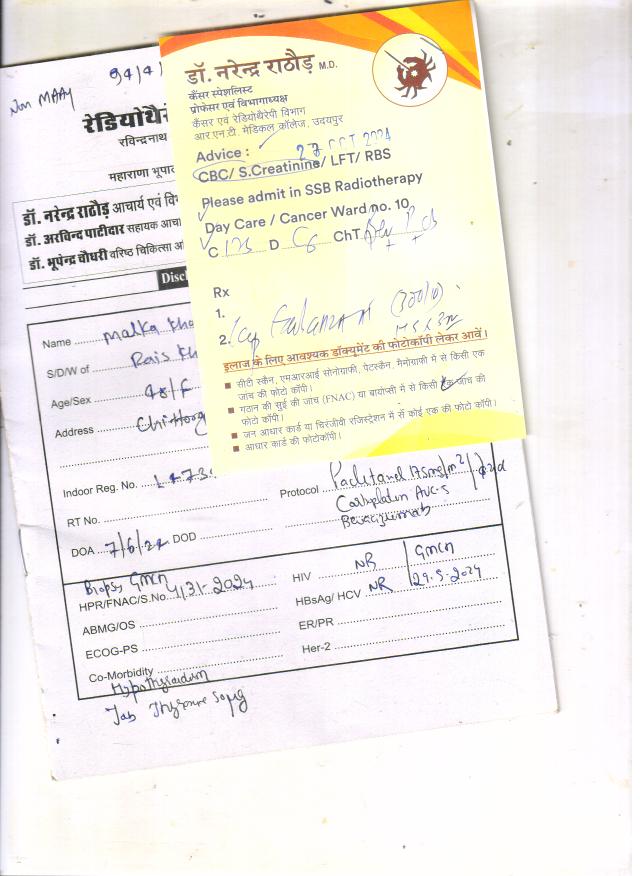 Non MAAY
रेडियोथैरे
रविन्द्रनाथ
महाराणा भूपा
डॉ. नरेन्द्र राठौड़ आचार्य एवं वि
डॉ. अरविन्द पाटीदार सहायक आचा
डॉ. भूपेन्द्र चौधरी वरिष्ठ चिकित्सा अ
Disc
डॉ. नरेन्द्र राठौड़ M.D.
कैंसर स्पेशलिस्ट
प्रोफेसर एवं विभागाध्यक्ष
कैंसर एवं रेडियोथैरेपी विभाग
आर.एन.टी. मेडिकल कॉलेज, उदयपुर
Advice :
27 OCT 2024
CBC/ S.Creatinine/ LFT/ RBS
Please admit in SSB Radiotherapy
Day Care / Cancer Ward no. 10
C 125 D C6 ChT
Rx
1.
2.
इलाज के लिए आवश्यक डॉक्यूमेंट की फोटोकॉपी लेकर आवें।
सीटी स्कैन, एमआरआई सोनोग्राफी, पेटस्कैन, मैमोग्राफी में से किसी एक
जांच की फोटो कॉपी।
गठान की सुई की जांच (FNAC) या बायोप्सी में से किसी एक जांच की
फोटो कॉपी।
जन आधार कार्ड या चिरंजीवी रजिस्ट्रेशन में से कोई एक की फोटो कॉपी।
आधार कार्ड की फोटोकॉपी।
Name Malka Kha
S/D/W of Rais Kh
Age/Sex 48/F
Address Chittorg
Indoor Reg. No.
Protocol Paclitaxel 175mg/m2
Carboplatin AUC-5
Bevacizumab
RT No.
DOA 7/6/24 DOD
Biopsy GMCH
HPR/FNAC/S.No. 4131-2024
HIV NR GMCH
HBsAg/ HCV NR 29.5.2024
ABMG/OS
ER/PR
ECOG-PS
Her-2
Co-Morbidity
Hypothyroidism
Tab Thyronorm 50µg